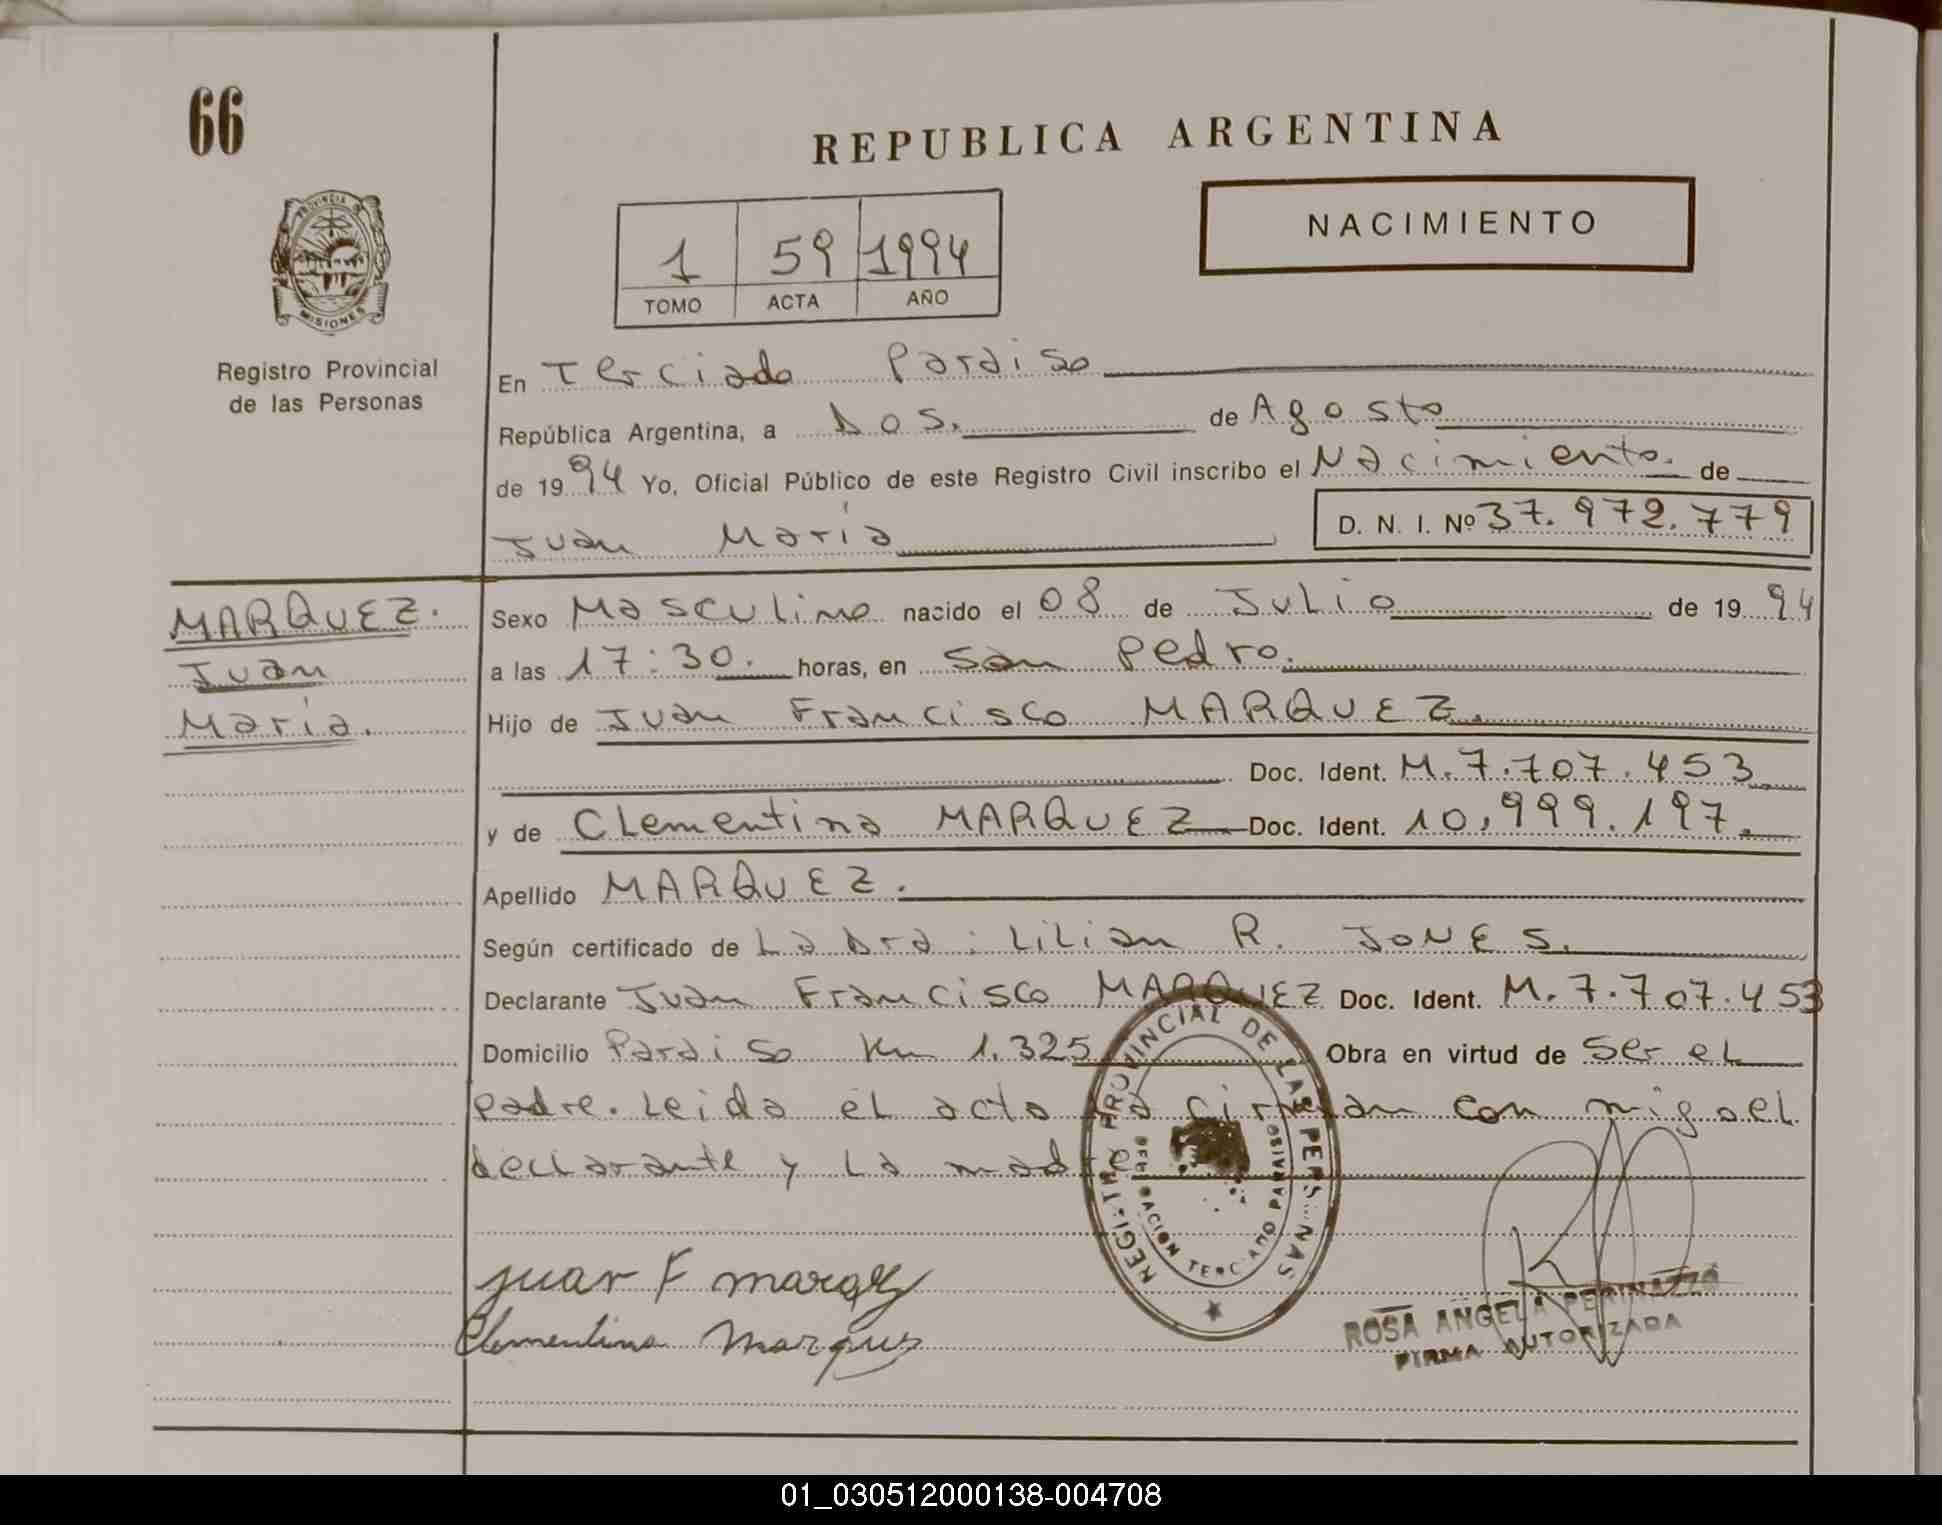 66
REPUBLICA ARGENTINA
PROVINCIA DE
MISIONES
Registro Provincial
de las Personas
1 59 1994
TOMO ACTA AÑO
NACIMIENTO
En Terciado Paraiso
República Argentina, a Dos. de Agosto
de 1994 Yo, Oficial Público de este Registro Civil inscribo el Nacimiento. de
Juan María D. N. I. Nº 37.972.779
MARQUEZ.
Juan
María.
Sexo Masculino nacido el 08 de Julio de 1994
a las 17:30. horas, en San Pedro.
Hijo de Juan Francisco MARQUEZ.
Doc. Ident. M.7.707.453
y de Clementina MARQUEZ Doc. Ident. 10.999.197.
Apellido MARQUEZ.
Según certificado de La Dra: Lilian R. JONES.
Declarante Juan Francisco MARQUEZ Doc. Ident. M.7.707.453
Domicilio Paraiso Km 1.325 Obra en virtud de ser el
padre. Leida el acta la firman con migo el
declarante y la madre
REGISTRO PROVINCIAL DE LAS PERSONAS
TERCIADO PARAISO
Juan F marqez
Clementina Marques
ROSA ANGELA PERINAZZO
FIRMA AUTORIZADA
01_030512000138-004708